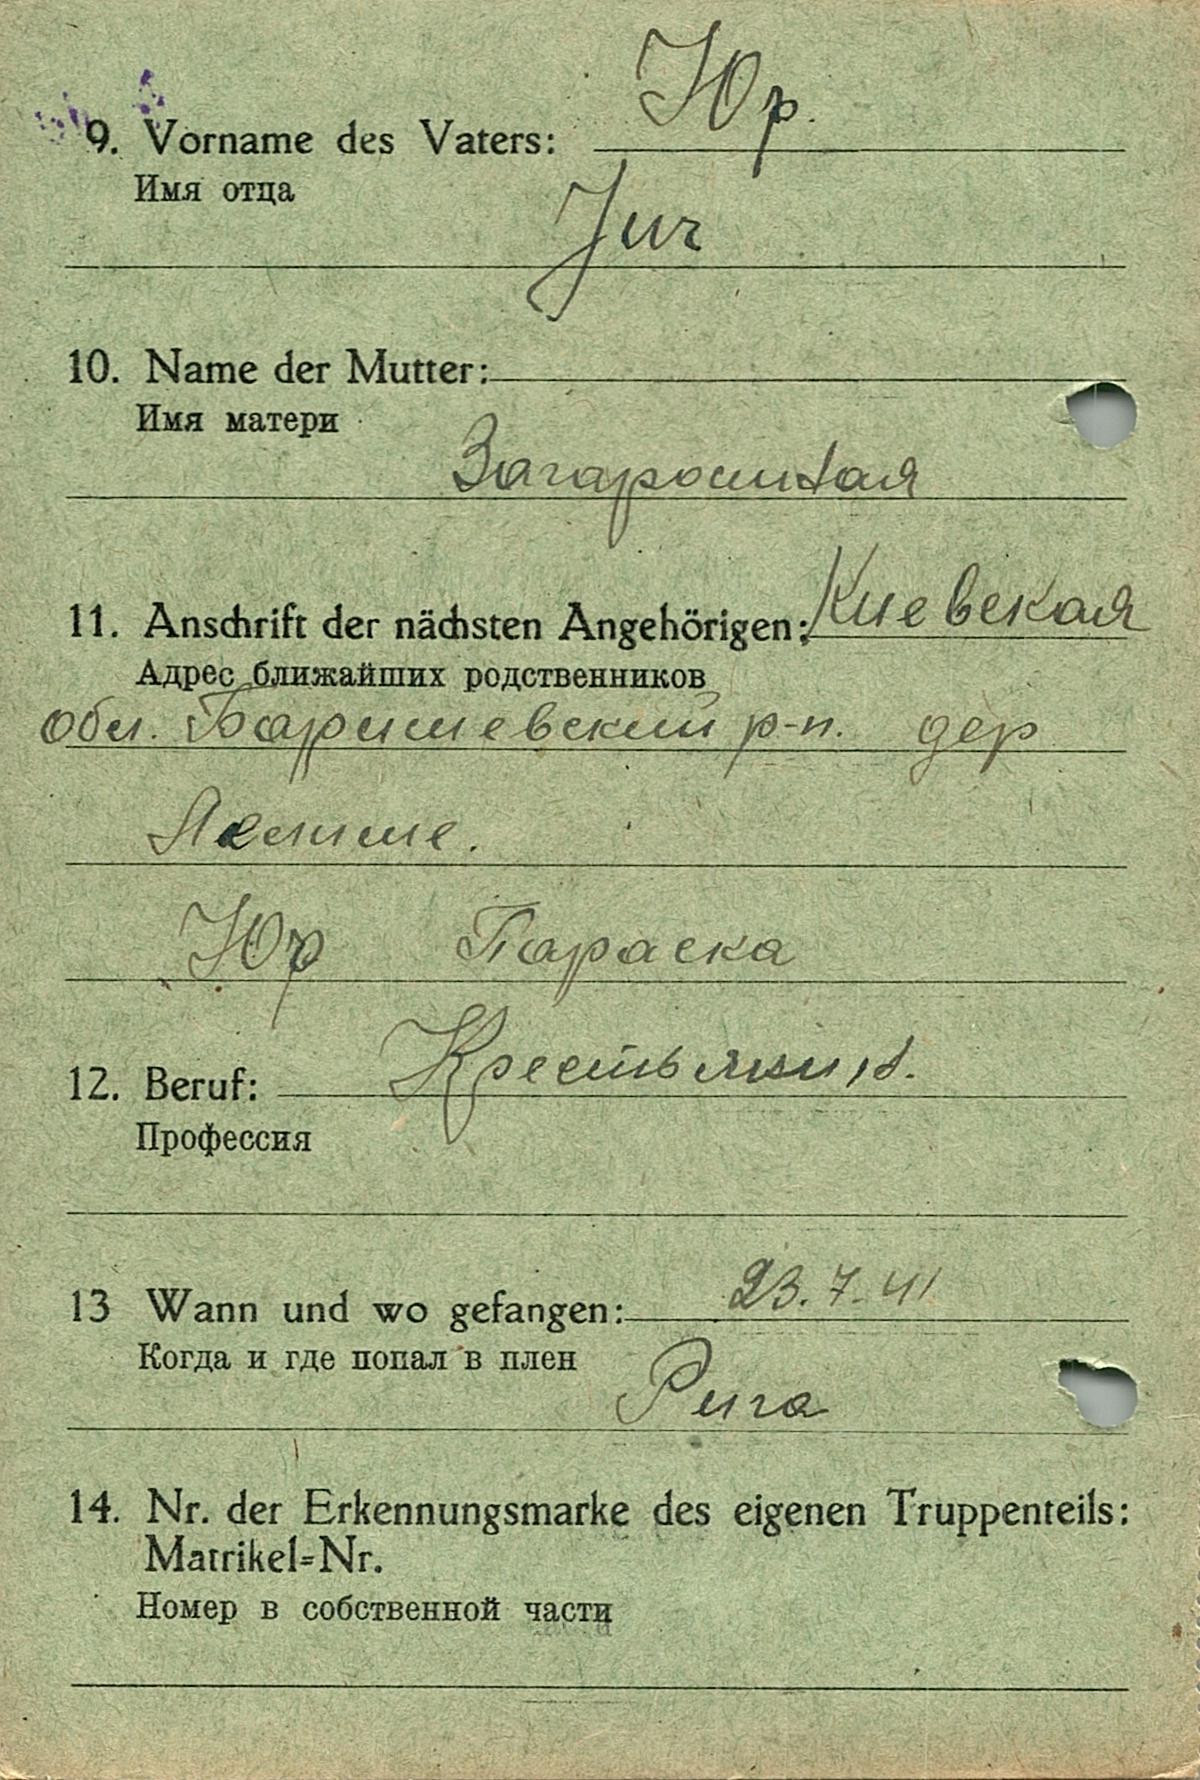 Юр.
9. Vorname des Vaters:
Имя отца
Jur
10. Name der Mutter:
Имя матери
11. Anschrift der nächsten Angehörigen: Киевская
Адрес ближайших родственников
обл. Баришевский р-н. дер
Юр Параска
12. Beruf: Крестьянин.
Профессия
13 Wann und wo gefangen: 23.7.41
Когда и где попал в плен
Рига
14. Nr. der Erkennungsmarke des eigenen Truppenteils:
Matrikel=Nr.
Номер в собственной части